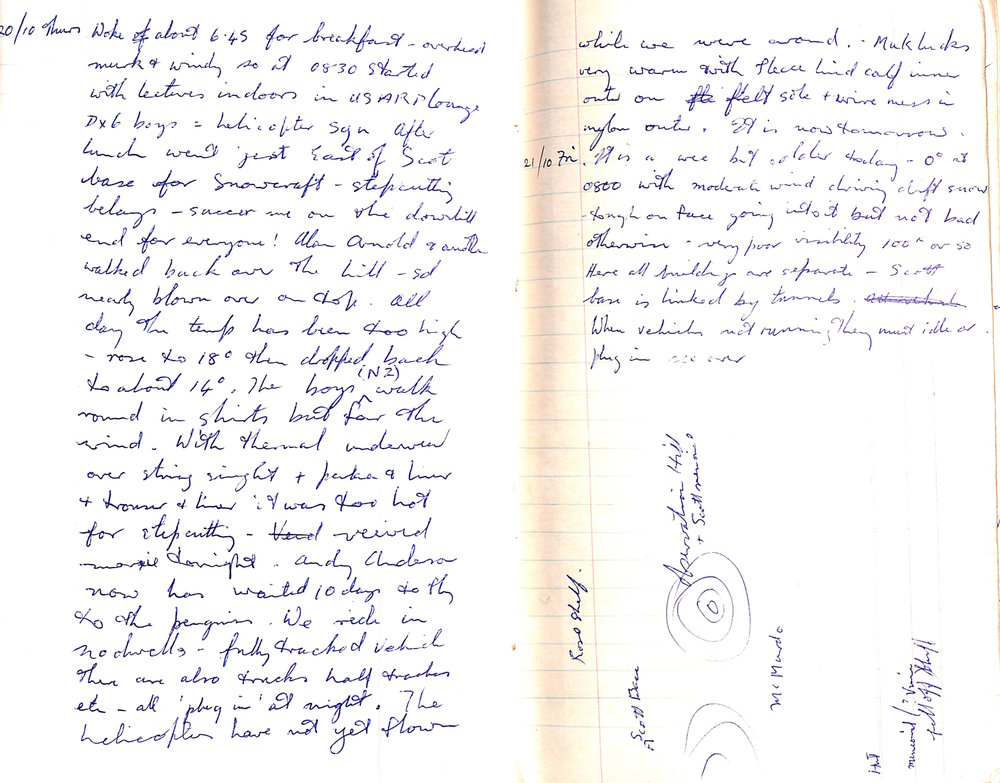 20/10 Thurs Woke at about 6.45 for breakfast - overcast
murk & windy so at 08:30 started
with lectures indoors in USARP lounge
Dx6 boys = helicopter sqn After
lunch went just East of Scot
base for Snowcraft - stepcutting
belays - soccer me on the downhill
end for everyone! Alan Arnold & another
walked back over the hill - sd
nearly blown over on top. All
day the temp has been too high
- rose to 18° then dropped back
to about 14°. The boys (NZ) walk
round in shirts but for the
wind. With thermal underwear
over string singlet + parka & liner
+ trouser & liner it was too hot
for stepcutting - weird
movie tonight. Andy Anderson
now has waited 10 days to fly
to the penguins. We ride in
nodwells - fully tracked vehicle
There are also trucks half tracks
etc - all 'plug in' at night. The
helicopters have not yet flown
while we were around. - Mukluks
very warm with fleece lined calf inner
outer on felt sole + wire mess in
nylon outer. It is now tomorrow.
21/10 Fri. It is a wee bit colder today - 0° at
0800 with moderate wind driving drift snow
- tough on face going into it but not bad
otherwise - very poor visibility 100" or so
Here all buildings are separate - Scott
base is linked by tunnels.
When vehicles not running they must idle or
plug in see over
Observation Hill
+ Scott memorial
Ross Shelf.
Scott Base
Mc Murdo
Hut
memorial (? Vince
fell off Shelf